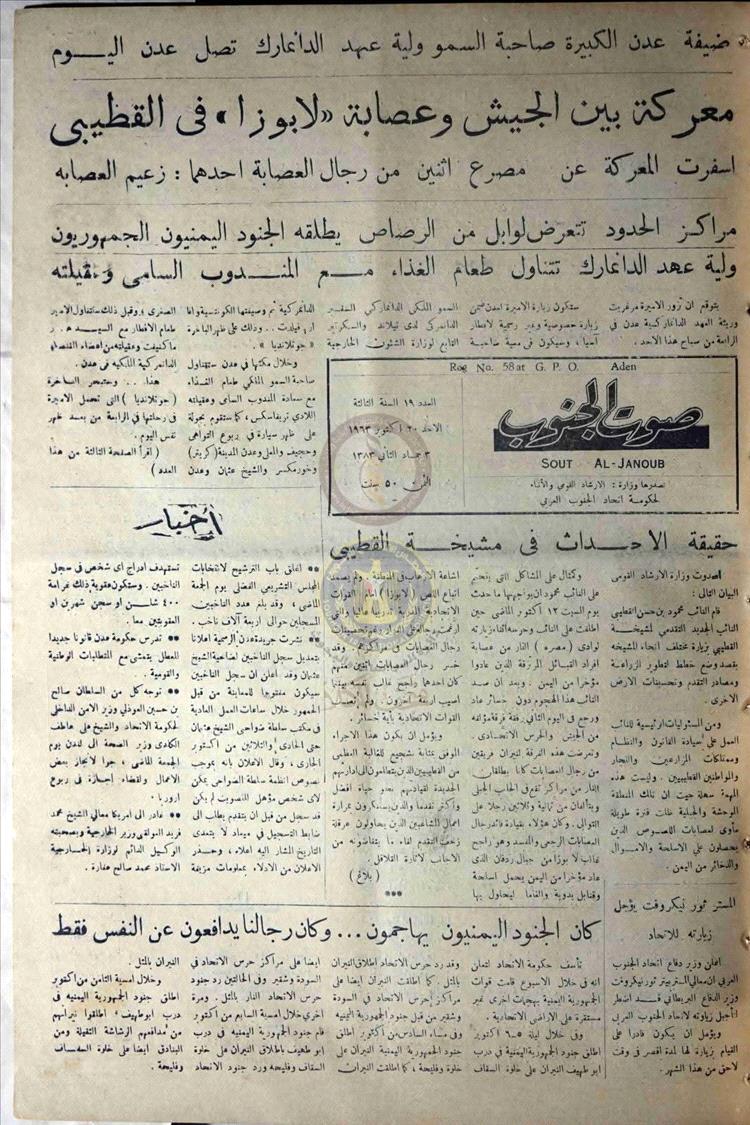 ضيفة عدن الكبيرة صاحبة السمو ولية عهد الدانمارك تصل عدن اليوم
معركة بين الجيش وعصابة «لابوزا» في القطيبي
اسفرت المعركة عن مصرع اثنين من رجال العصابة احدهما : زعيم العصابه
مراكز الحدود تتعرض لوابل من الرصاص يطلقه الجنود اليمنيون الجمهوريون
ولية عهد الدانمارك تتناول طعام الغذاء مع المندوب السامي وعقيلته
يتوقع ان تزور الاميرة مرغريت
وريثة العهد الدانماركية عدن في
الرابعة من صباح هذا الاحد .
ستكون زيارة الاميرة لعدن ضمن
زيارة خصوصية وغير رسمية لاقطار
آسيا ، وسيكون في معية صاحبة
السمو الملكي الدانماركي السفير
الدانمركي لدى تيلاند والسكرتير
التابع لوزارة الشئون الخارجية
الدانمركية ثم وصيفتها الكونتيسة
وذلك على ظهر الباخرة
« جوتلانديا » .
وخلال مكثها في عدن ستتناول
صاحبة السمو الملكي طعام الغذاء
مع سعادة المندوب السامي وعقيلته
اللادي تريفاسكس ، كما ستقوم بجولة
على ظهر سيارة في ربوع التواهي
وحجيف والمعلا وعدن المدينة (كريتر)
وخورمكسر والشيخ عثمان وعدن
الصغرى ، وقبل ذلك ستتناول الامير
طعام الافطار مع السيد
وعقيلته من اعضاء القنصلية
الدانمركية الملكية في عدن .
هذا .. وستبحر الباخرة
(جوتلانديا) التي تحمل الاميرة
في رحلتها في الرابعة من بعد ظهر
نفس اليوم .
( اقرأ الصفحة الثالثة من هذا
العدد )
Reg No. 58 at G. P. O. Aden
صوت الجنوب
SOUT AL-JANOUB
تصدرها وزارة : الارشاد القومي والأنباء
لحكومة اتحاد الجنوب العربي
العدد ١٩ السنة الثالثة
الاحد ٢٠ اكتوبر ١٩٦٣
٣ جماد الثاني ١٣٨٣
الثمن ٥٠ سنت
حقيقة الاحداث في مشيخة القطيبي
اصدرت وزارة الارشاد القومي
البيان التالي :
قام النائب محمود بن حسن القطيبي
النائب الجديد التقدمي لمشيخة
القطيبي بزيارة مختلف انحاء المشيخه
بقصد وضع خطط لتطوير الزراعة
ومصادر التقدم وتحسينات الارض
الاخرى .
ومن المسئوليات الرئيسية للنائب
العمل على سيادة القانون والنظام
وممتلكات المزارعين والتجار
والمواطنين القطيبيين . وليست هذه
المهمة سهلة حيث ان تلك المنطقة
الوحشة والجبلية ظلت فترة طويلة
مأوى لعصابات اللصوص الذين
يحصلون على الاسلحة والاموال
والذخائر من اليمن .
وكمثال على المشاكل التي يتحتم
على النائب محمود ان يواجهها ما حدث
يوم السبت ١٢ اكتوبر الماضي حين
اطلقت على النائب وحرسه أثناء زيارته
لوادي (مصره) النار من عصابة
افراد القبائل المرتزقة الذين عادوا
مؤخرا من اليمن . وبعد ان صد
النائب هذا الهجوم دون خسائر عاد
ورجع في اليوم الثاني رفقة فرقة مؤلفه
من الجيش والحرس الاتحادي .
وتعرضت هذه الفرقة لنيران فريقين
من رجال العصابات كانا يطلقان
النار من مراكز تقع في الجانب الجبلي
ويتألفان من ثمانية وثلاثين رجلا على
التوالي . وكان هؤلاء بقيادة قائد رجال
العصابات الرجعي والمفسد وهو راجح
غالب لابوزا من جبال ردفان الذي
عاد مؤخرا من اليمن يحمل اسلحة
وقنابل يدوية والغاما ليحاول بها
اشاعة الارهاب في المنطقة . ولم يصمد
اتباع اللص (لابوزا) امام القوات
الاتحادية المدربة تدريبا عاليا والتي
ارغمت رجاله على الفرار
رجال العصابات في مراكزهم . وقد
خسر رجال العصابات اثنين منهم
كان احدهما راجح غالب نفسه بينما
اصيب اربعة آخرون . ولم تصب
القوات الاتحادية بأية خسائر .
ويؤمل ان يكون هذا الاجراء
الموفق بمثابة تشجيع للغالبة العظمى
من القطيبيين الذين يتطلعون الى ادارتهم
الجديدة لقيادتهم نحو حياة افضل
واكثر تقدما والذين يستنكرون بمرارة
اعمال المشاغبين الذين يحاولون عرقلة
زحف التقدم لقاء ما يتقاضونه من
الاجانب لاثارة القلاقل .
( بلاغ )
***
أخبار
** اغلق باب الترشيح لانتخابات
المجلس التشريعي الفصلي يوم الجمعة
الماضي ، وقد بلغ عدد الناخبين
المسجلين حوالى اربعة آلاف ناخب .
** نشرت جريدة عدن الرسمية اعلانا
بتعديل سجل الناخبين لضاحية الشيخ
عثمان وقد اعلن ان سجل الناخبين
سيكون مفتوحا للمعاينة من قبل
الجمهور خلال ساعات العمل العادية
في مكتب سلطة ضواحي الشيخ عثمان
حتى الحادي والثلاثين من اكتوبر
الجاري ، وقال الاعلان بانه بموجب
نصوص انظمة سلطة الضواحي يمكن
لاي شخص مؤهل للتصويت لم يكن
قد سجل من قبل ان يتقدم بطلب الى
ضابط التسجيل في ميعاد لا يتعدى
التاريخ المشار اليه اعلاه ، وحذر
الاعلان من الادلاء بمعلومات مزيفة
تستهدف ادراج اي شخص في سجل
الناخبين . وستكون عقوبة ذلك غرامة
٤٠٠ شلن او سجن شهرين او
العقوبتين معا .
** تدرس حكومة عدن قانونا جديدا
للعطل يتمشى مع المتطلبات الوطنية
والقومية .
** توجه كل من السلطان صالح
بن حسين العوذلي وزير الامن الداخلي
لحكومة الاتحاد والشيخ علي عاطف
الكلدي وزير الصحة الى لندن يوم
الجمعة الماضي ، جوا لانجاز بعض
الاعمال ولقضاء اجازة في ربوع
اوروبا .
** غادر الى امريكا معالي الشيخ محمد
فريد العولقي وزير الخارجية وبصحبته
الوكيل الدائم لوزارة الخارجية
الاستاذ محمد صالح عفارة .
المستر ثور نيكروفت يؤجل
زيارته للاتحاد
اعلن وزير دفاع اتحاد الجنوب
العربي ان معالي المستر بيتر ثورنيكروفت
وزير الدفاع البريطاني قد اضطر
لتأجيل زيارته لاتحاد الجنوب العربي
ويؤمل ان يكون قادرا على
القيام بزيارة لها لمدة اقصر في وقت
لاحق من هذا الشهر .
كان الجنود اليمنيون يهاجمون ... وكان رجالنا يدافعون عن النفس فقط
تأسف حكومة الاتحاد لتعلن
انه في خلال الاسبوع قامت قوات
الجمهورية اليمنية بهجمات اخرى غير
مستفزة على الاراضي الاتحادية .
وفي خلال ليلة ٥ــ٦ اكتوبر
اطلق جنود الجمهورية اليمنية في درب
ابو طهيف النيران على خلوة السقاف
وقد رد حرس الاتحاد اطلاق النيران
بالمثل . كما اطلقت النيران ايضا على
مراكز حرس الاتحاد في السودة
وشقير من قبل جنود الجمهورية اليمنيه
وفي مساء السادس من اكتوبر اطلق
جنود الجمهورية اليمنية النيران على
خلوة وفليحة ، كما اطلقت النيران
ايضا على مراكز حرس الاتحاد في
السودة وشقير وفي الحالتين رد جنود
حرس الاتحاد النار بالمثل . ومرة
اخرى خلال امسية السابع من اكتوبر
قام جنود الجمهورية اليمنيه في درب
ابو طهيف باطلاق النيران على خلوة
السقاف وفليحه ورد جنود الاتحاد
النيران بالمثل .
وخلال امسية الثامن من اكتوبر
اطلق جنود الجمهورية اليمنيه في
درب ابوطهيف ، اطلقوا نيرانهم
من مدافعهم الرشاشة الثقيلة ومن
البنادق ايضا على خلوة السقاف
وفليحة .